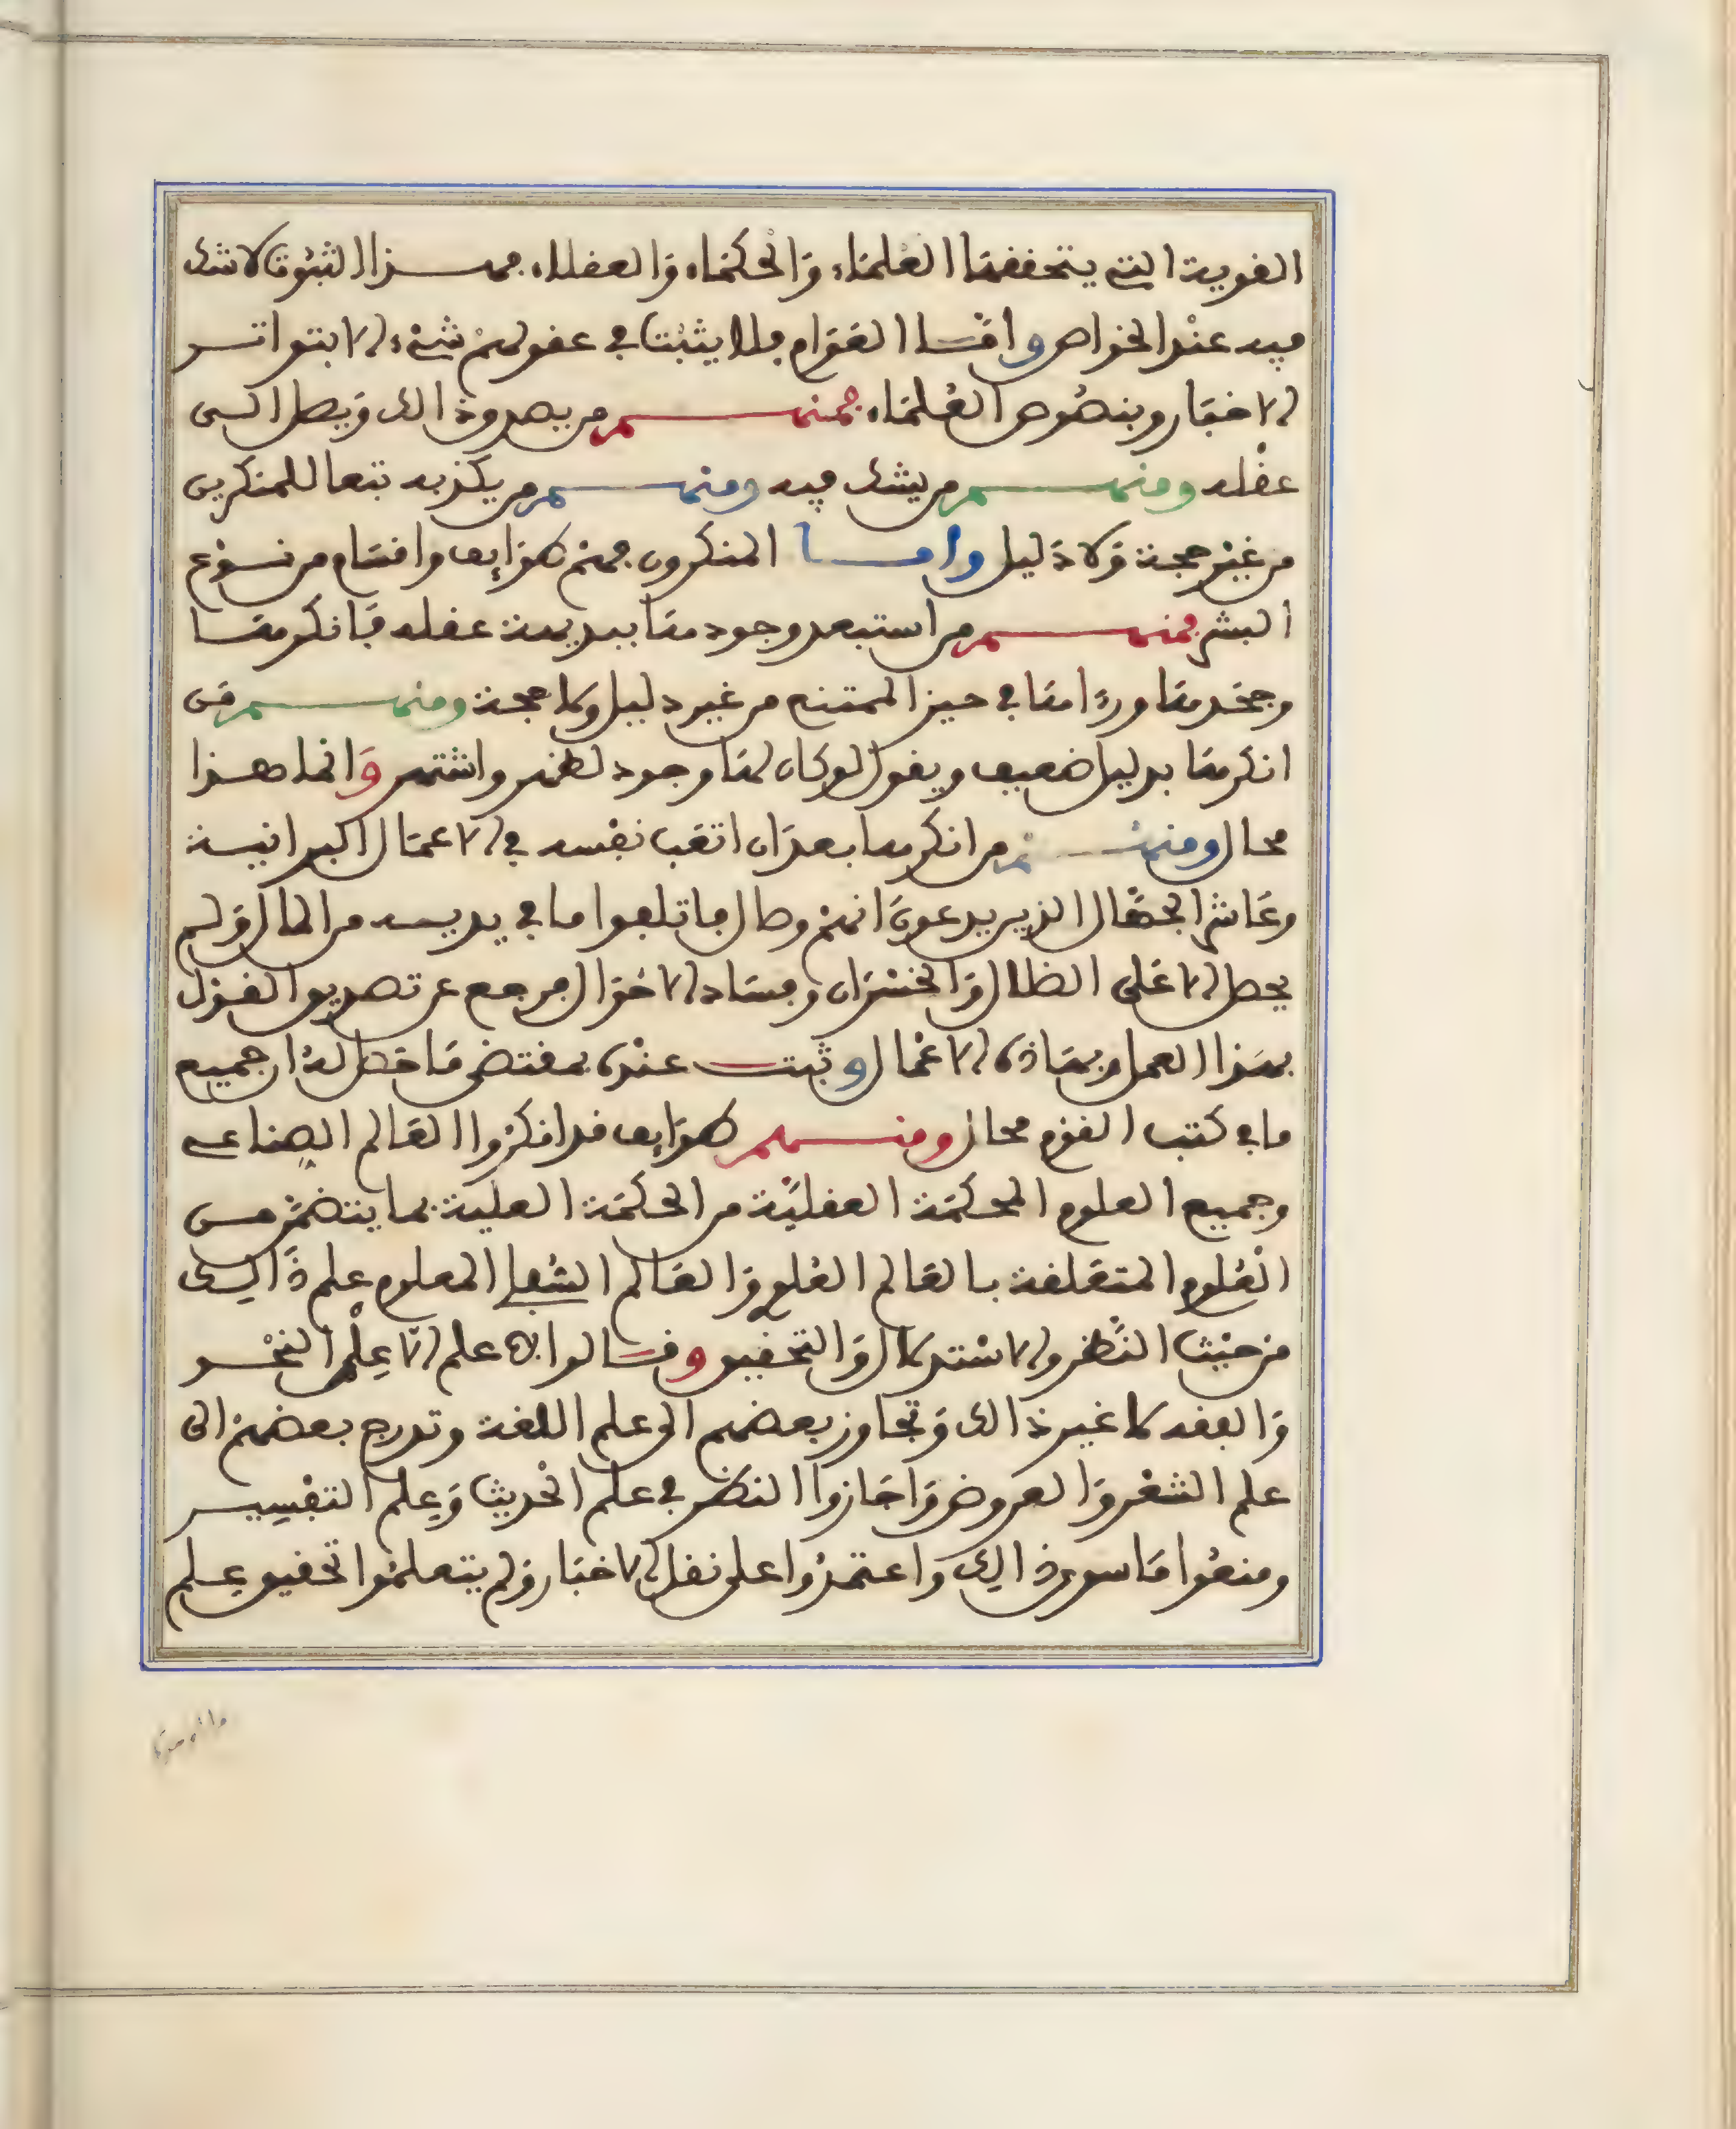 القوية التي يتحققها العلماء والحكماء والعقلاء فهذا الثبوت لا شك
فيه عند الخواص واما العوام فلا يثبت في عقولهم شيء الا بتواتر
الاخبار وبنصوص العلماء فمنهم من يصدق ذالك ويصل الى
عقله ومنهم من يشك فيه ومنهم من يكذبه تبعا للمنكرين
من غير حجة ولا دليل واما المنكرون فهم طوايف واقسام من نوع
البشر فمنهم من استبعد وجودها ببديهة عقله فانكرها
وجحدها ورءاها في حيز الممتنع من غير دليل ولا حجة ومنهم من
انكرها بدليل ضعيف ويقول لو كان لها وجود لظهر واشتهر وانما هذا
محال ومنهم من انكرها بعد ان اتعب نفسه في الاعمال البرانية
وعاشر الجهال الذين يدعون انهم وصال فاتلفوا ما في يديه من المال ولم
يحصل الا على الظلال والخسران وفساد الاحوال فرجع عن تصديق القول
بهذا العمل وبهاذه الاعمال وثبت عنده بمقتضى ما حصل له ان جميع
ما في كتب القوم محال ومنهم طوايف قد انكروا العالم الصناعي
وجميع العلوم المحكمة العقلية من الحكمة العلية بما يتضمن من
العلوم المتعلقة بالعالم العلوي والعالم السفلي المعلوم علم ذالك
من حيث النظر والاستدلال والتحقيق وقالوا لا علم الا علم النحو
والفقه لا غير ذالك وتجاوز بعضهم الى علم اللغة وتدرج بعضهم الى
علم الشعر والعروض واجازوا النظر في علم الحديث وعلم التفسير
ومنعوا ما سوى ذالك واعتمدوا على نقل الاخبار ولم يتعلموا تحقيق علم